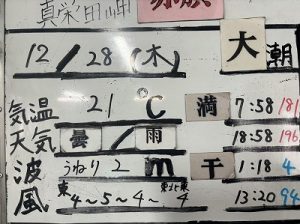 真栄田岬
12/28(木) 大潮
気温 21℃ 満 7:58 181
天気 曇/雨 18:58 196
波 うねり2m 干 1:18 4
風 東4~5~4~東北東4 13:20 94